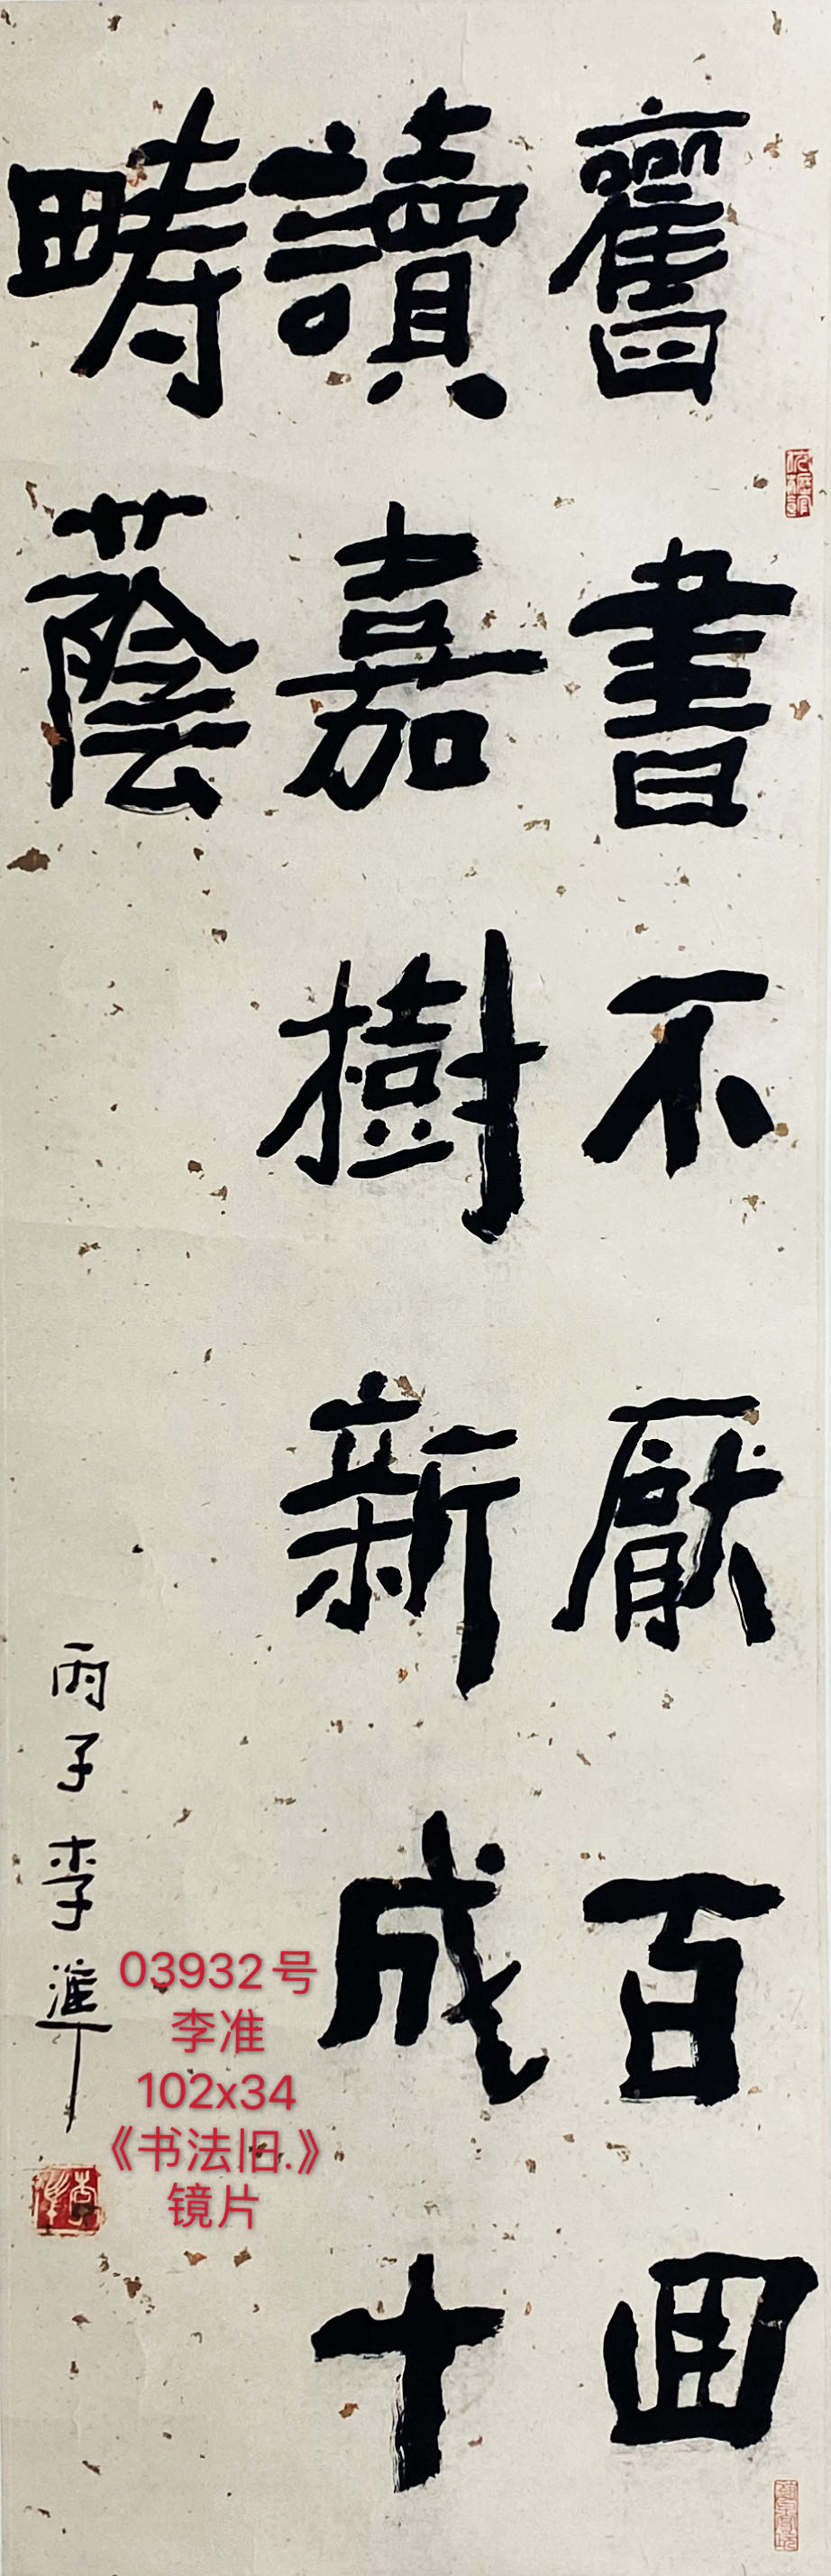 舊書不厭百回
讀嘉樹新成十
疇蔭
丙子李準
03932号
李准
102x34
《书法旧.》
镜片